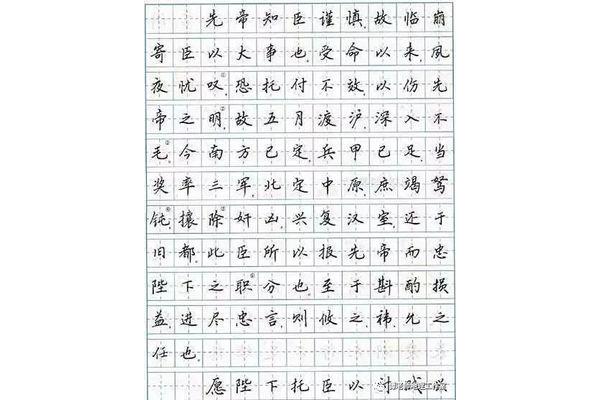 先帝知臣谨慎,故临崩
寄臣以大事也。受命以来,夙
夜忧叹,恐托付不效,以伤先
帝之明。故五月渡泸,深入不
毛。今南方已定,兵甲已足,当
奖率三军,北定中原,庶竭驽
钝,攘除奸凶,兴复汉室,还于
旧都。此臣所以报先帝而忠
陛下之职分也。至于斟酌损
益,进尽忠言,则攸之、祎、允之
任也。
愿陛下托臣以讨贼兴